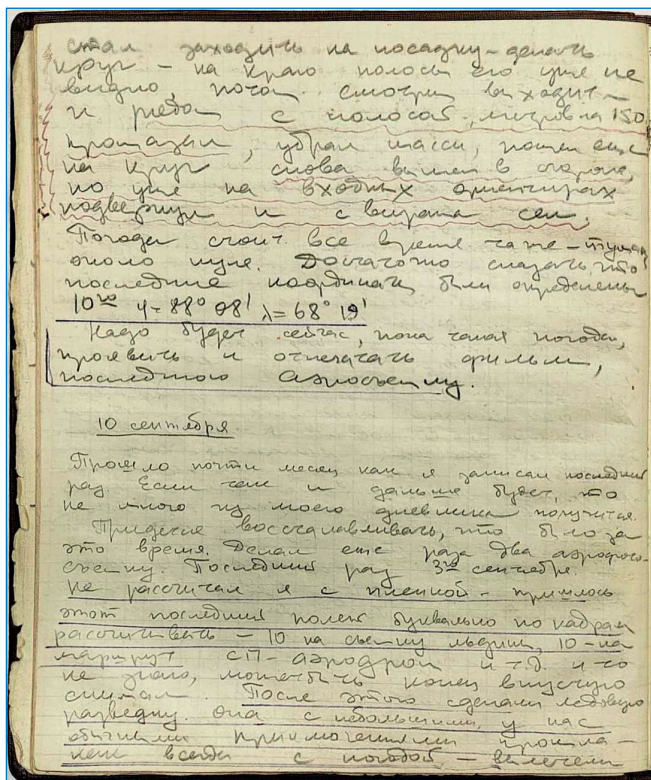 стал заходить на посадку – делать
круг – на краю полосы его уже не
видно, потом смотрим выходит –
и рядом с полосой, метров на 150
промазал, убрал шасси, пошел еще
на круг снова вышел в стороне,
но уже на входных ориентирах
подвернул и с виража сел.
Погода стоит все время та же – туман
около нуля. Достаточно сказать, что
последние координаты были определены
10го φ = 88° 08' λ = 68° 19'
Надо будет сейчас, пока такая погода,
проявить и отпечатать фильм,
последнюю аэросъемку.
10 сентября
Прошло почти месяц как я записал последний
раз. Если так и дальше будет, то
не много из моего дневника получится.
Придется восстанавливать, что было за
это время. Делал еще раза два аэрофото-
съемку. Последний раз 3го сентября.
Не рассчитал я с пленкой – пришлось
этот последний полет буквально по кадрам
рассчитывать – 10 на съемку льдины, 10 – на
маршрут СП – аэродром и т.д. и то
не знаю, может быть конец впустую
снимал. После этого сделали ледовую
разведку. Она с небольшими, у нас
обычными приключениями прошла –
как всегда с погодой – вылетели